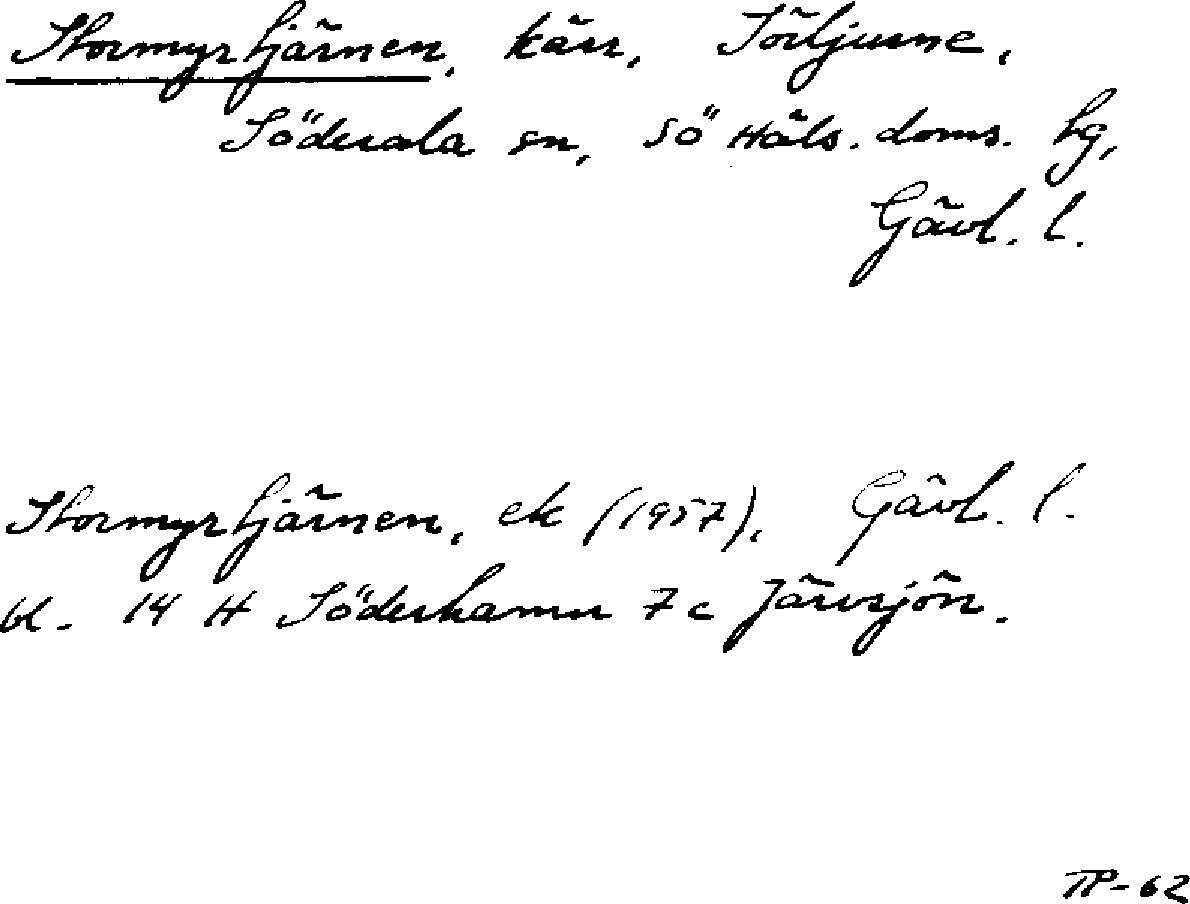 Stormyrtjärnen, kärr, Sörljusne,
Söderala sn, Sö Häls. doms. tg,
Gävl. l.
Stormyrtjärnen, ek (1957), Gävl. l.
bl. 14 H Söderhamn 7 c Järvsjön.
TP-62